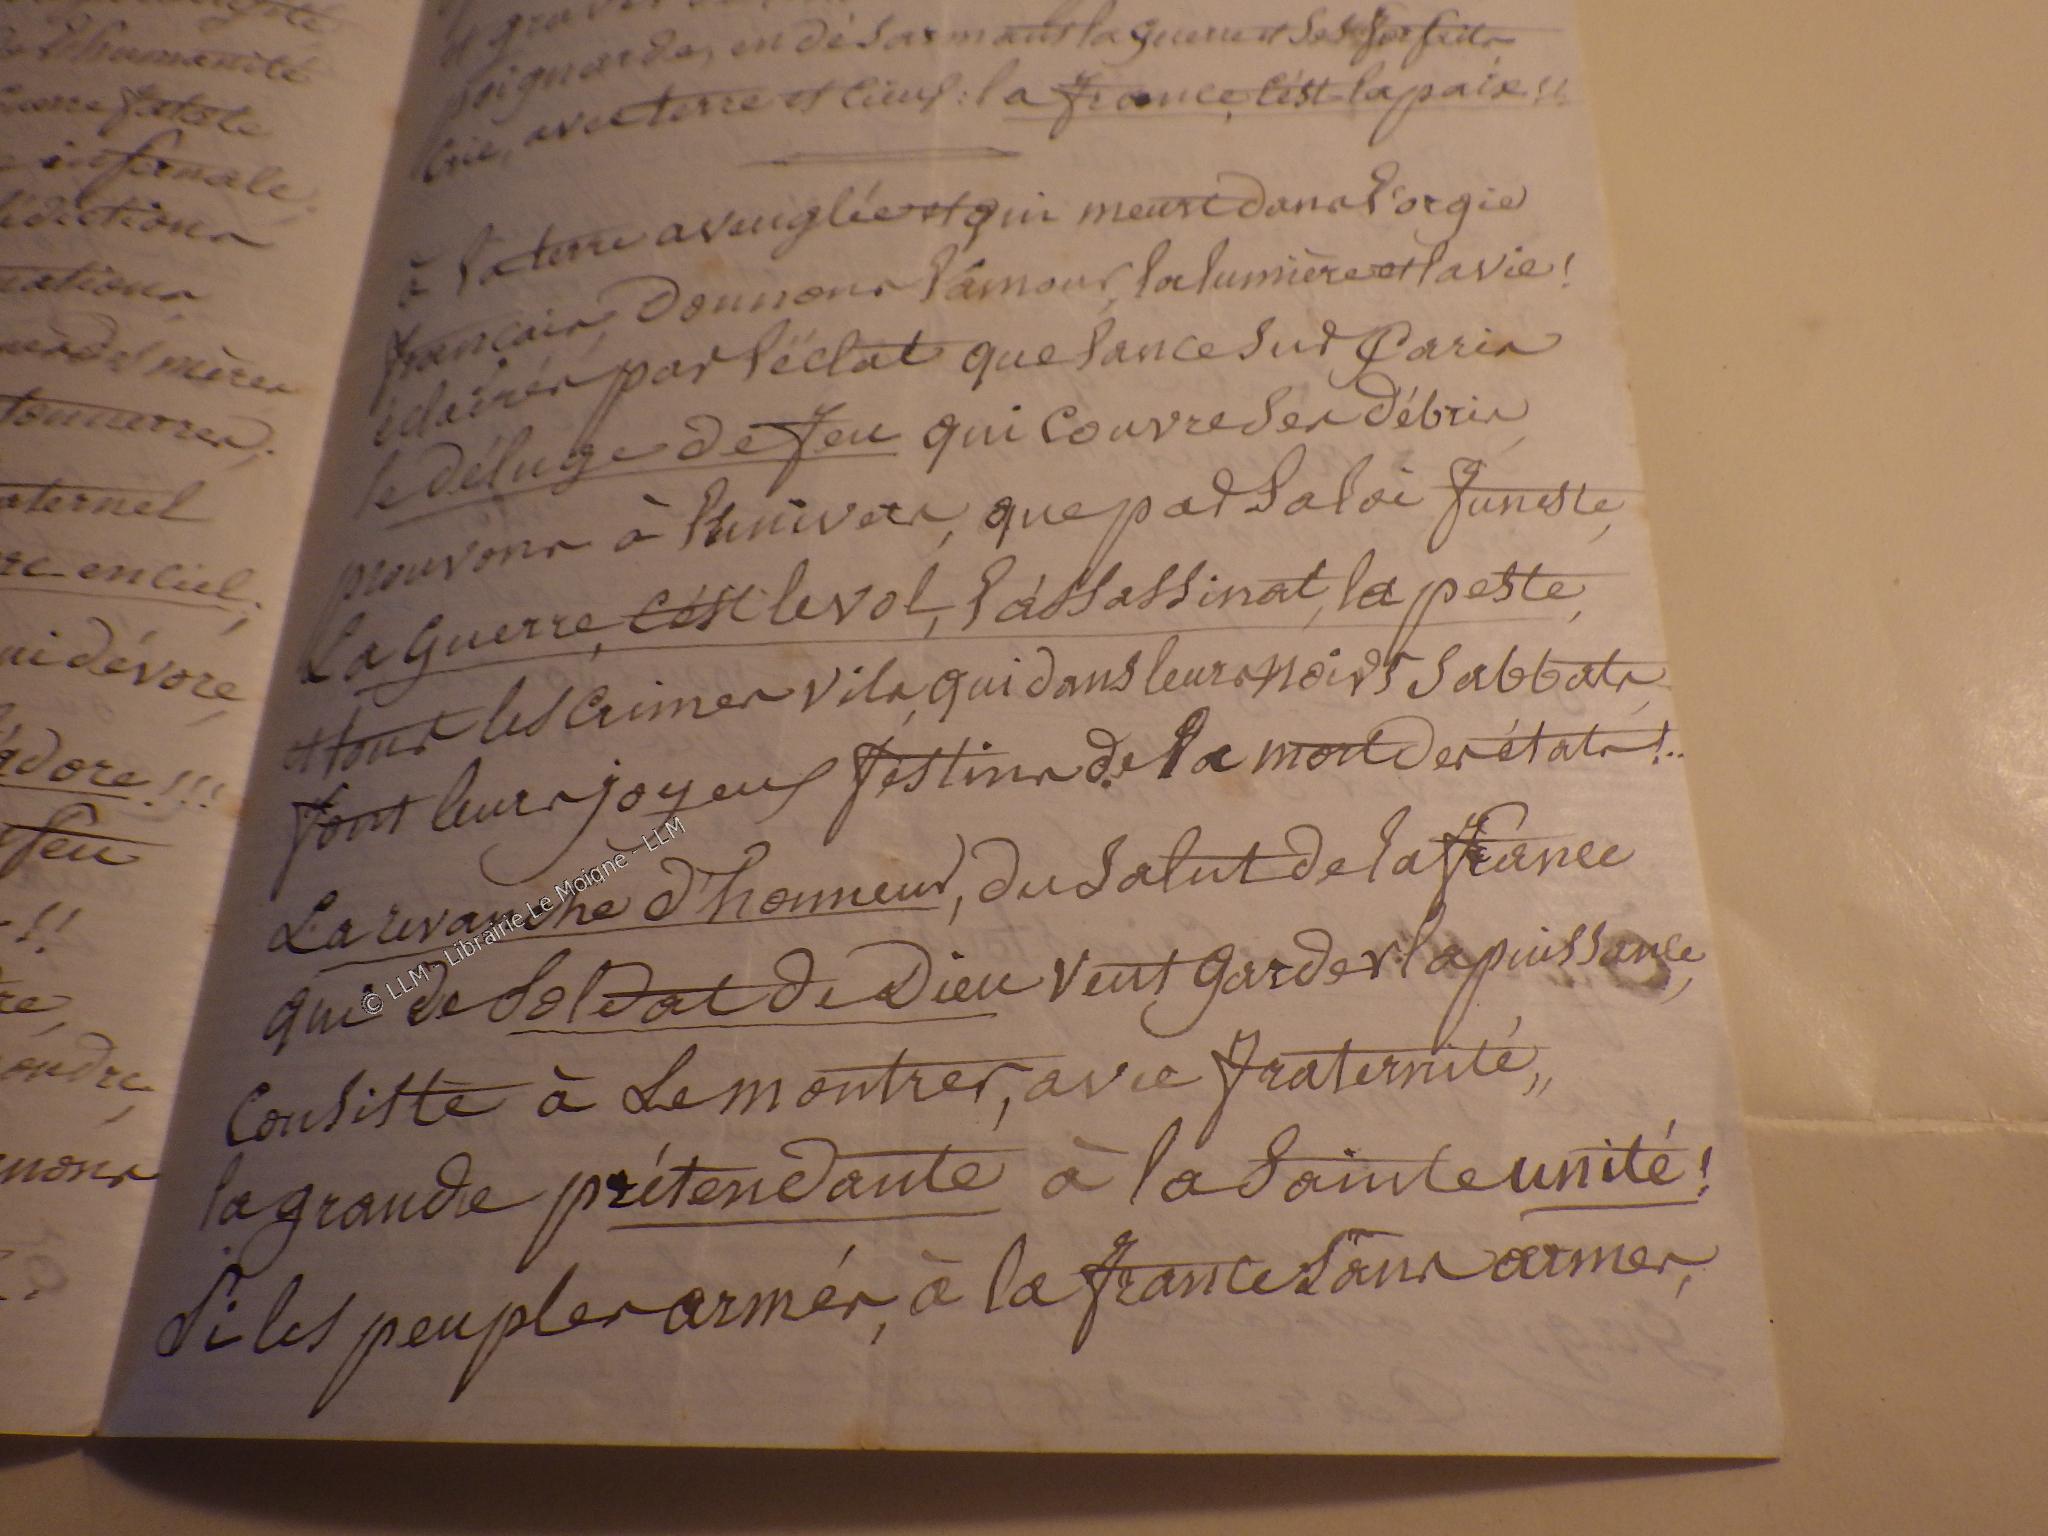 l'humanité
fatale
infernale,
mères
tonnerres,
en ciel,
qui dévore,
adore!!!
feu
!!
poignarde, en désarmant la guerre et ses forfaits
Crie, avec terre et cieux: la france, c'est la paix!!
à la terre aveuglée et qui meurt dans l'orgie
français, donnons l'amour, la lumière et la vie!
éclairés par l'éclat que lance sur Paris
le déluge de feu qui couvre ses débris,
prouvons à l'univers, que par sa loi funeste,
La guerre, c'est le vol, l'assassinat, la peste,
et tous les crimes vils, qui dans leurs noirs sabbats,
font leurs joyeux festins de la mort des états!..
La revanche d'honneur, du salut de la france
qui de soldat de Dieu veut garder la puissance,
consiste à se montrer, avec fraternité,,
la grande prétendante à la sainte unité!
Si les peuples armés, à la france sans armes,
© LLM - Librairie Le Moigne - LLM